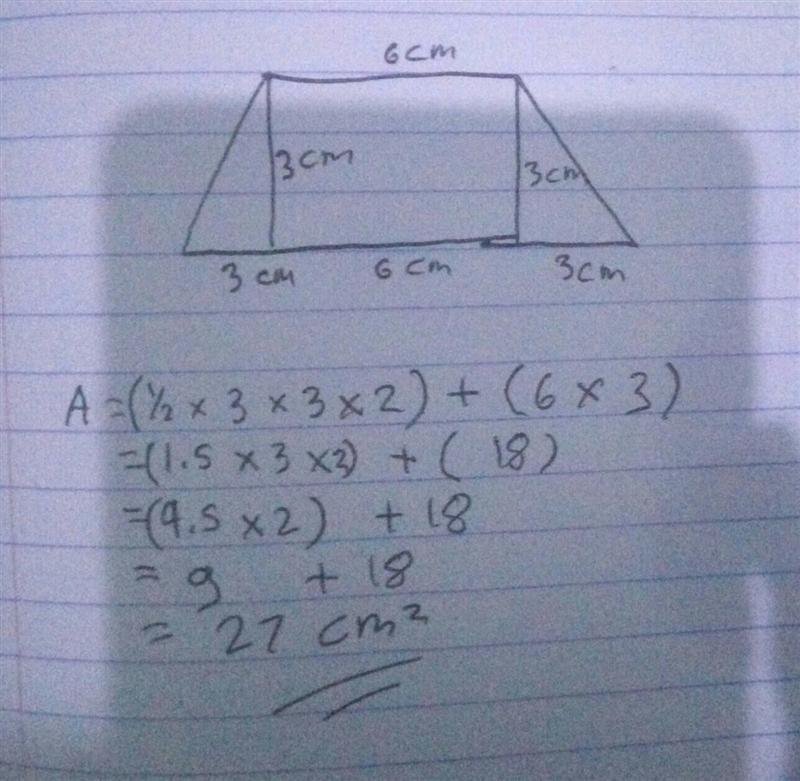 6cm
3cm
3cm
3 cm 6 cm 3cm
A = (1/2 × 3 × 3 × 2) + (6 × 3)
= (1.5 × 3 × 2) + ( 18 )
= (4.5 × 2) + 18
= 9 + 18
= 27 cm²